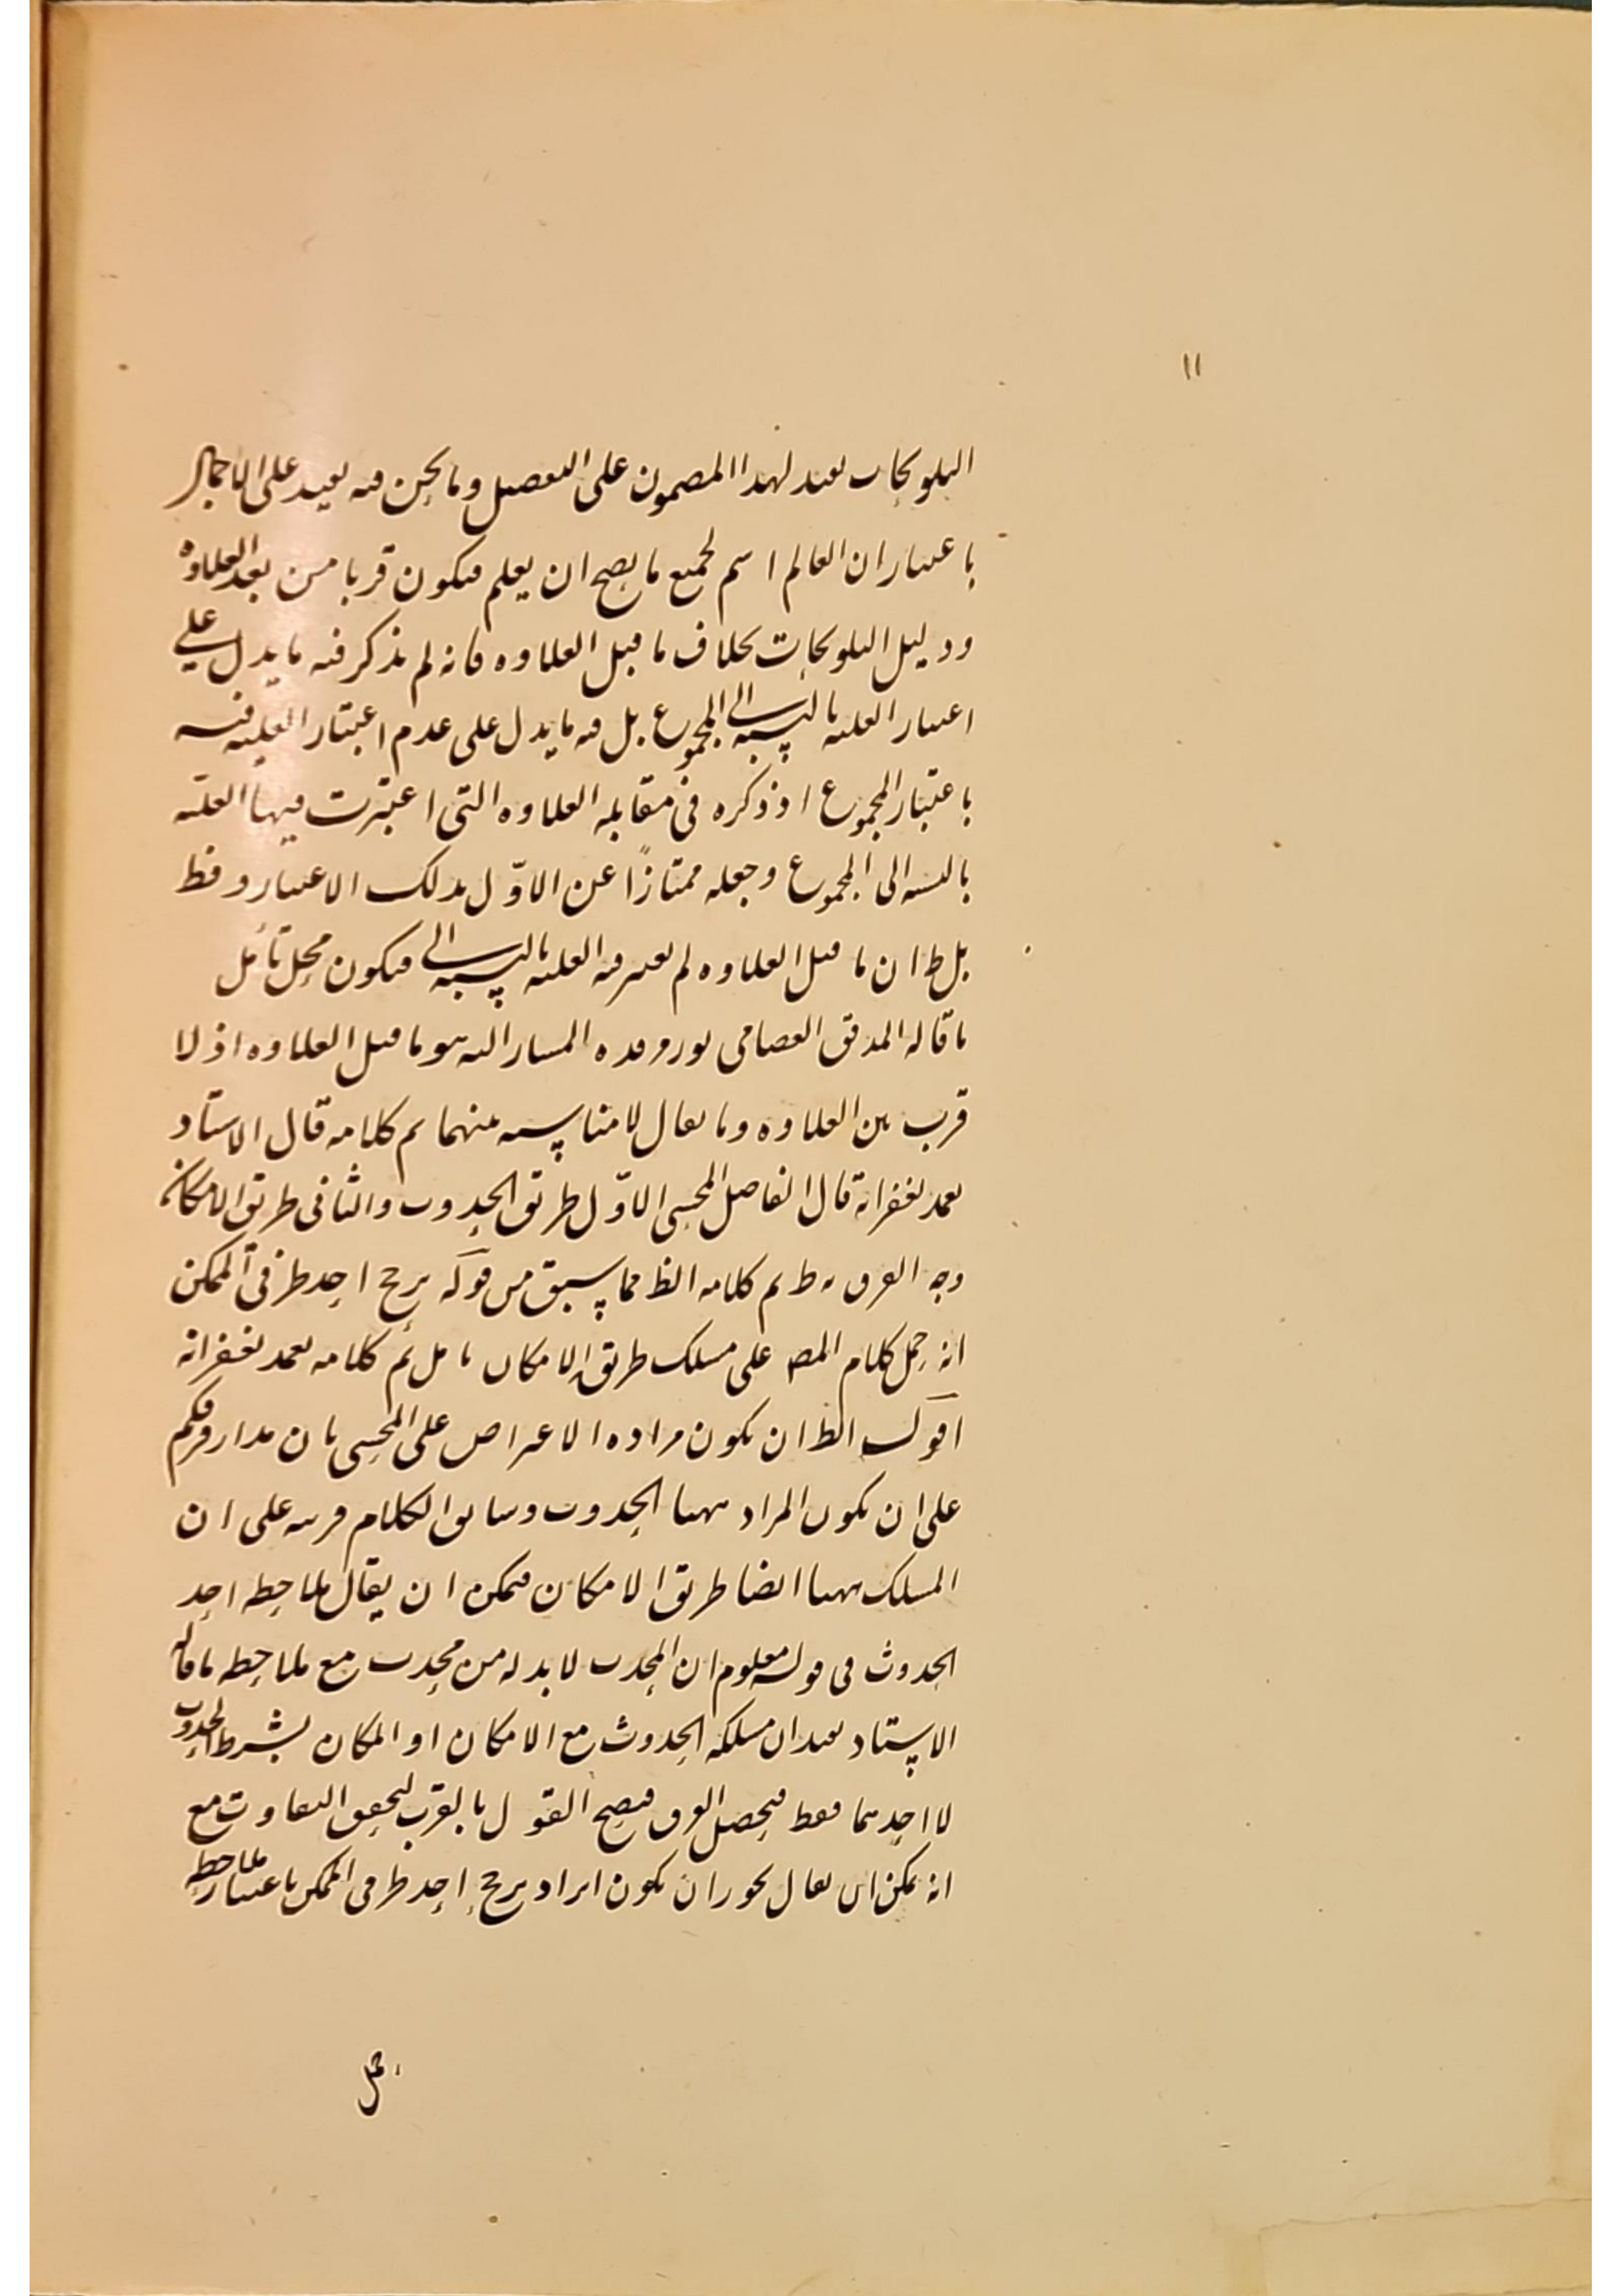 ١١
التلويحات تفيد لهذا المضمون على التفصيل وما نحن فيه يفيد على الاجمال
باعتبار ان العالم اسم لجميع ما يصح ان يعلم فيكون قربا من بعد العلاوة
ودليل التلويحات بخلاف ما قبل العلاوه فانه لم يذكر فيه ما يدل على
اعتبار العلية بالنسبة الى المجموع بل فيه ما يدل على عدم اعتبار العلية فيه
باعتبار المجموع اذ ذكره في مقابله العلاوه التي اعتبرت فيها العلية
بالنسبه الى المجموع وجعله ممتازًا عن الاوّل بذلك الاعتبار وفظ
بل ظ ان ما قبل العلاوه لم يعتبر فيه العليه بالنسبة الى فيكون محل تأمل
ما قاله المدقق العصامي المشار اليه هو ما قبل العلاوه اذ لا
قرب بين العلاوه وما يقال لا مناسبه بينهما تم كلامه قال الاستاد
تغمد بغفرانه قال الفاضل المحشي الاوّل طريق الحدوث والثاني طريق الامكان
وجه الفرق ظ تم كلامه الظ مما سبق من قوله ترجح احد طرفي الممكن
انه حمل كلام المص على مسلك طريق الامكان تامل تم كلامه تغمد بغفرانه
اقول الظ ان يكون مراده الاعتراض على المحشي بان مدار فرقكم
على ان يكون المراد ههنا الحدوث وسابق الكلام قرينه على ان
المسلك ههنا ايضا طريق الامكان فيمكن ان يقال ملاحظه احد
الحدوث في قوله معلوم ان المحدث لا بد له من محدث مع ملاحظه ما قاله
الاستاد يفيد ان مسلكه الحدوث مع الامكان او المكان بشرط الحدوث
لا احدهما فقط فيحصل الفرق فيصح القول بالقرب لتحقق التفاوت مع
انه يمكن ان يقال يجوز ان يكون ايراد ترجح احد طرفي الممكن باعتبار ملاحظه